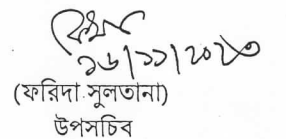 ১৬/১১/২০২৩
(ফরিদা সুলতানা)
উপসচিব